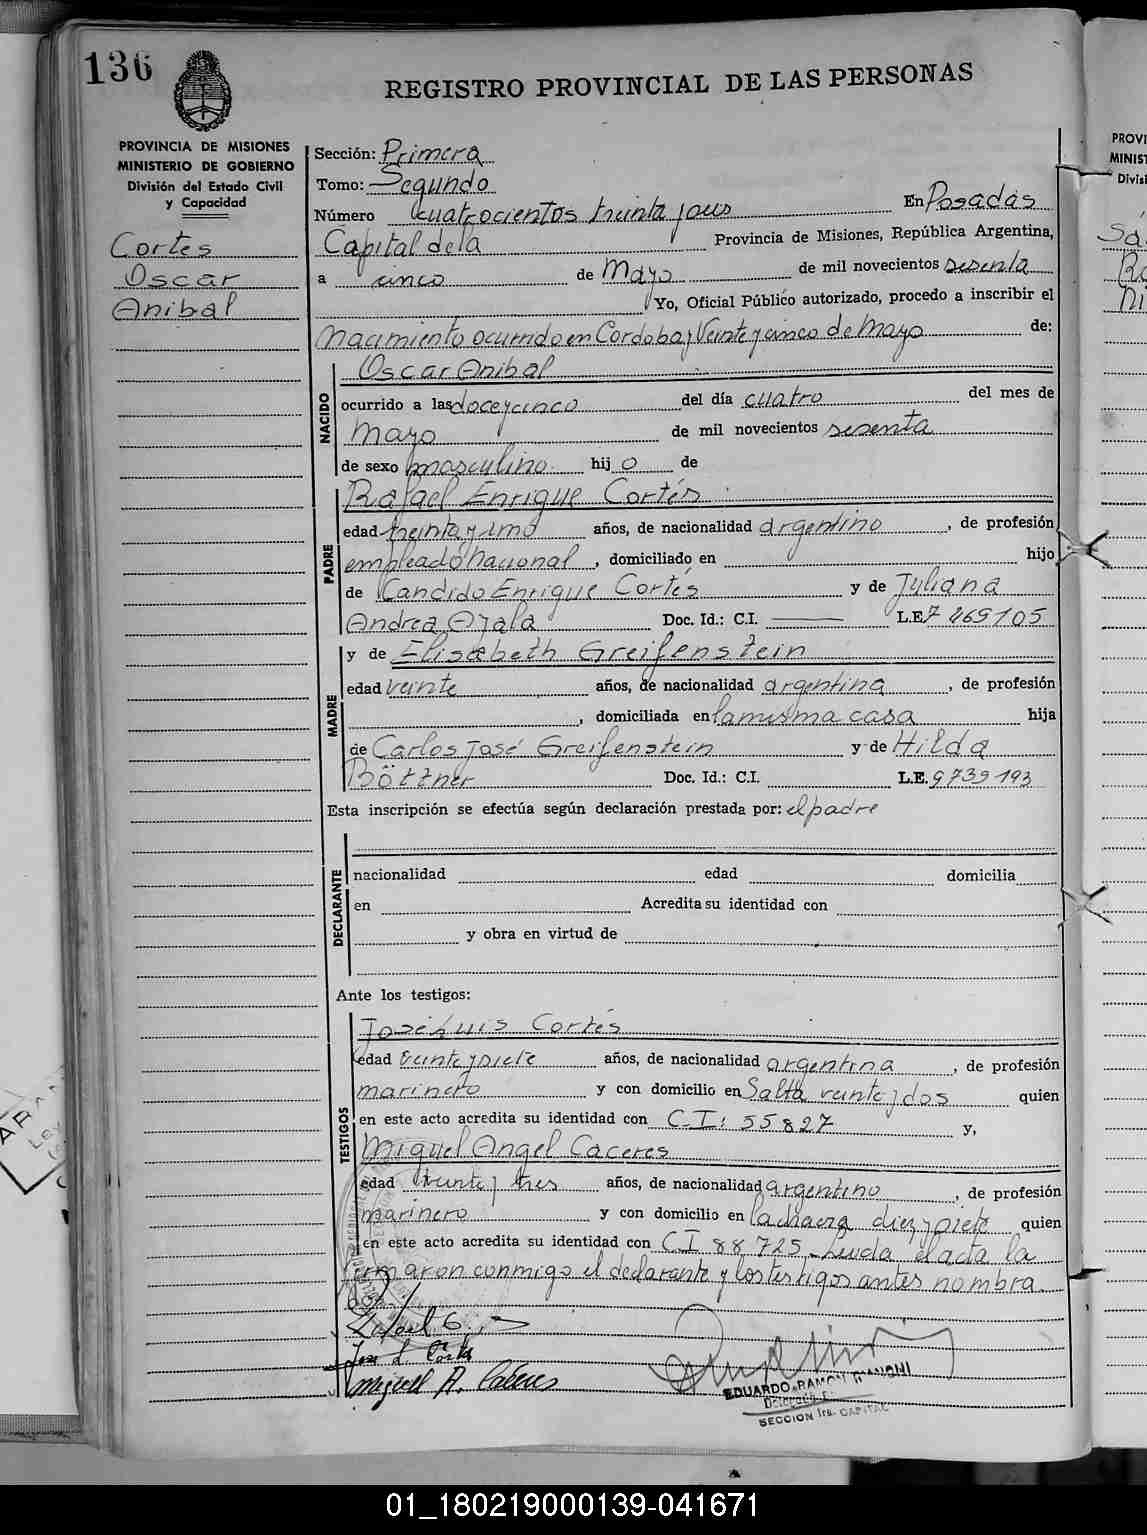 136
REGISTRO PROVINCIAL DE LAS PERSONAS
PROVINCIA DE MISIONES
MINISTERIO DE GOBIERNO
División del Estado Civil
y Capacidad
Cortes
Oscar
Anibal
Sección: Primera
Tomo: Segundo
Número cuatrocientos treinta y En Posadas
Capital de la Provincia de Misiones, República Argentina,
a cinco de Mayo de mil novecientos sesenta
Yo, Oficial Público autorizado, procedo a inscribir el
nacimiento ocurrido en Cordoba y Veinte y cinco de Mayo de:
NACIDO
Oscar Anibal
ocurrido a las doce y cinco del día cuatro del mes de
Mayo de mil novecientos sesenta
de sexo masculino hijo de
PADRE
Rafael Enrique Cortés
edad treinta y uno años, de nacionalidad argentino, de profesión
empleado nacional, domiciliado en hijo
de Candido Enrique Cortés y de Juliana
Andrea Ayala Doc. Id.: C.I. L.E. 7469105
MADRE
y de Elisabeth Greifenstein
edad veinte años, de nacionalidad argentina, de profesión
, domiciliada en la misma casa hija
de Carlos José Greifenstein y de Hilda
Böttner Doc. Id.: C.I. L.E. 9739193
Esta inscripción se efectúa según declaración prestada por: el padre
DECLARANTE
nacionalidad edad domicilia
en Acredita su identidad con
y obra en virtud de
Ante los testigos:
TESTIGOS
José Luis Cortés
edad veinte y siete años, de nacionalidad argentina, de profesión
marinero y con domicilio en Salta veinte y dos quien
en este acto acredita su identidad con C.I: 55827 y,
Miguel Angel Caceres
edad treinta y tres años, de nacionalidad argentino, de profesión
marinero y con domicilio en la chacra diez y siete quien
en este acto acredita su identidad con C.I 88725 Leida el acta la
firmaron conmigo el declarante y los testigos antes nombra
dos
Rafael
José L. Cortés
Miguel A. Caceres
EDUARDO RAMON
SECCION 1ra. CAPITAL
PROVI
MINIST
Divisi
01_180219000139-041671